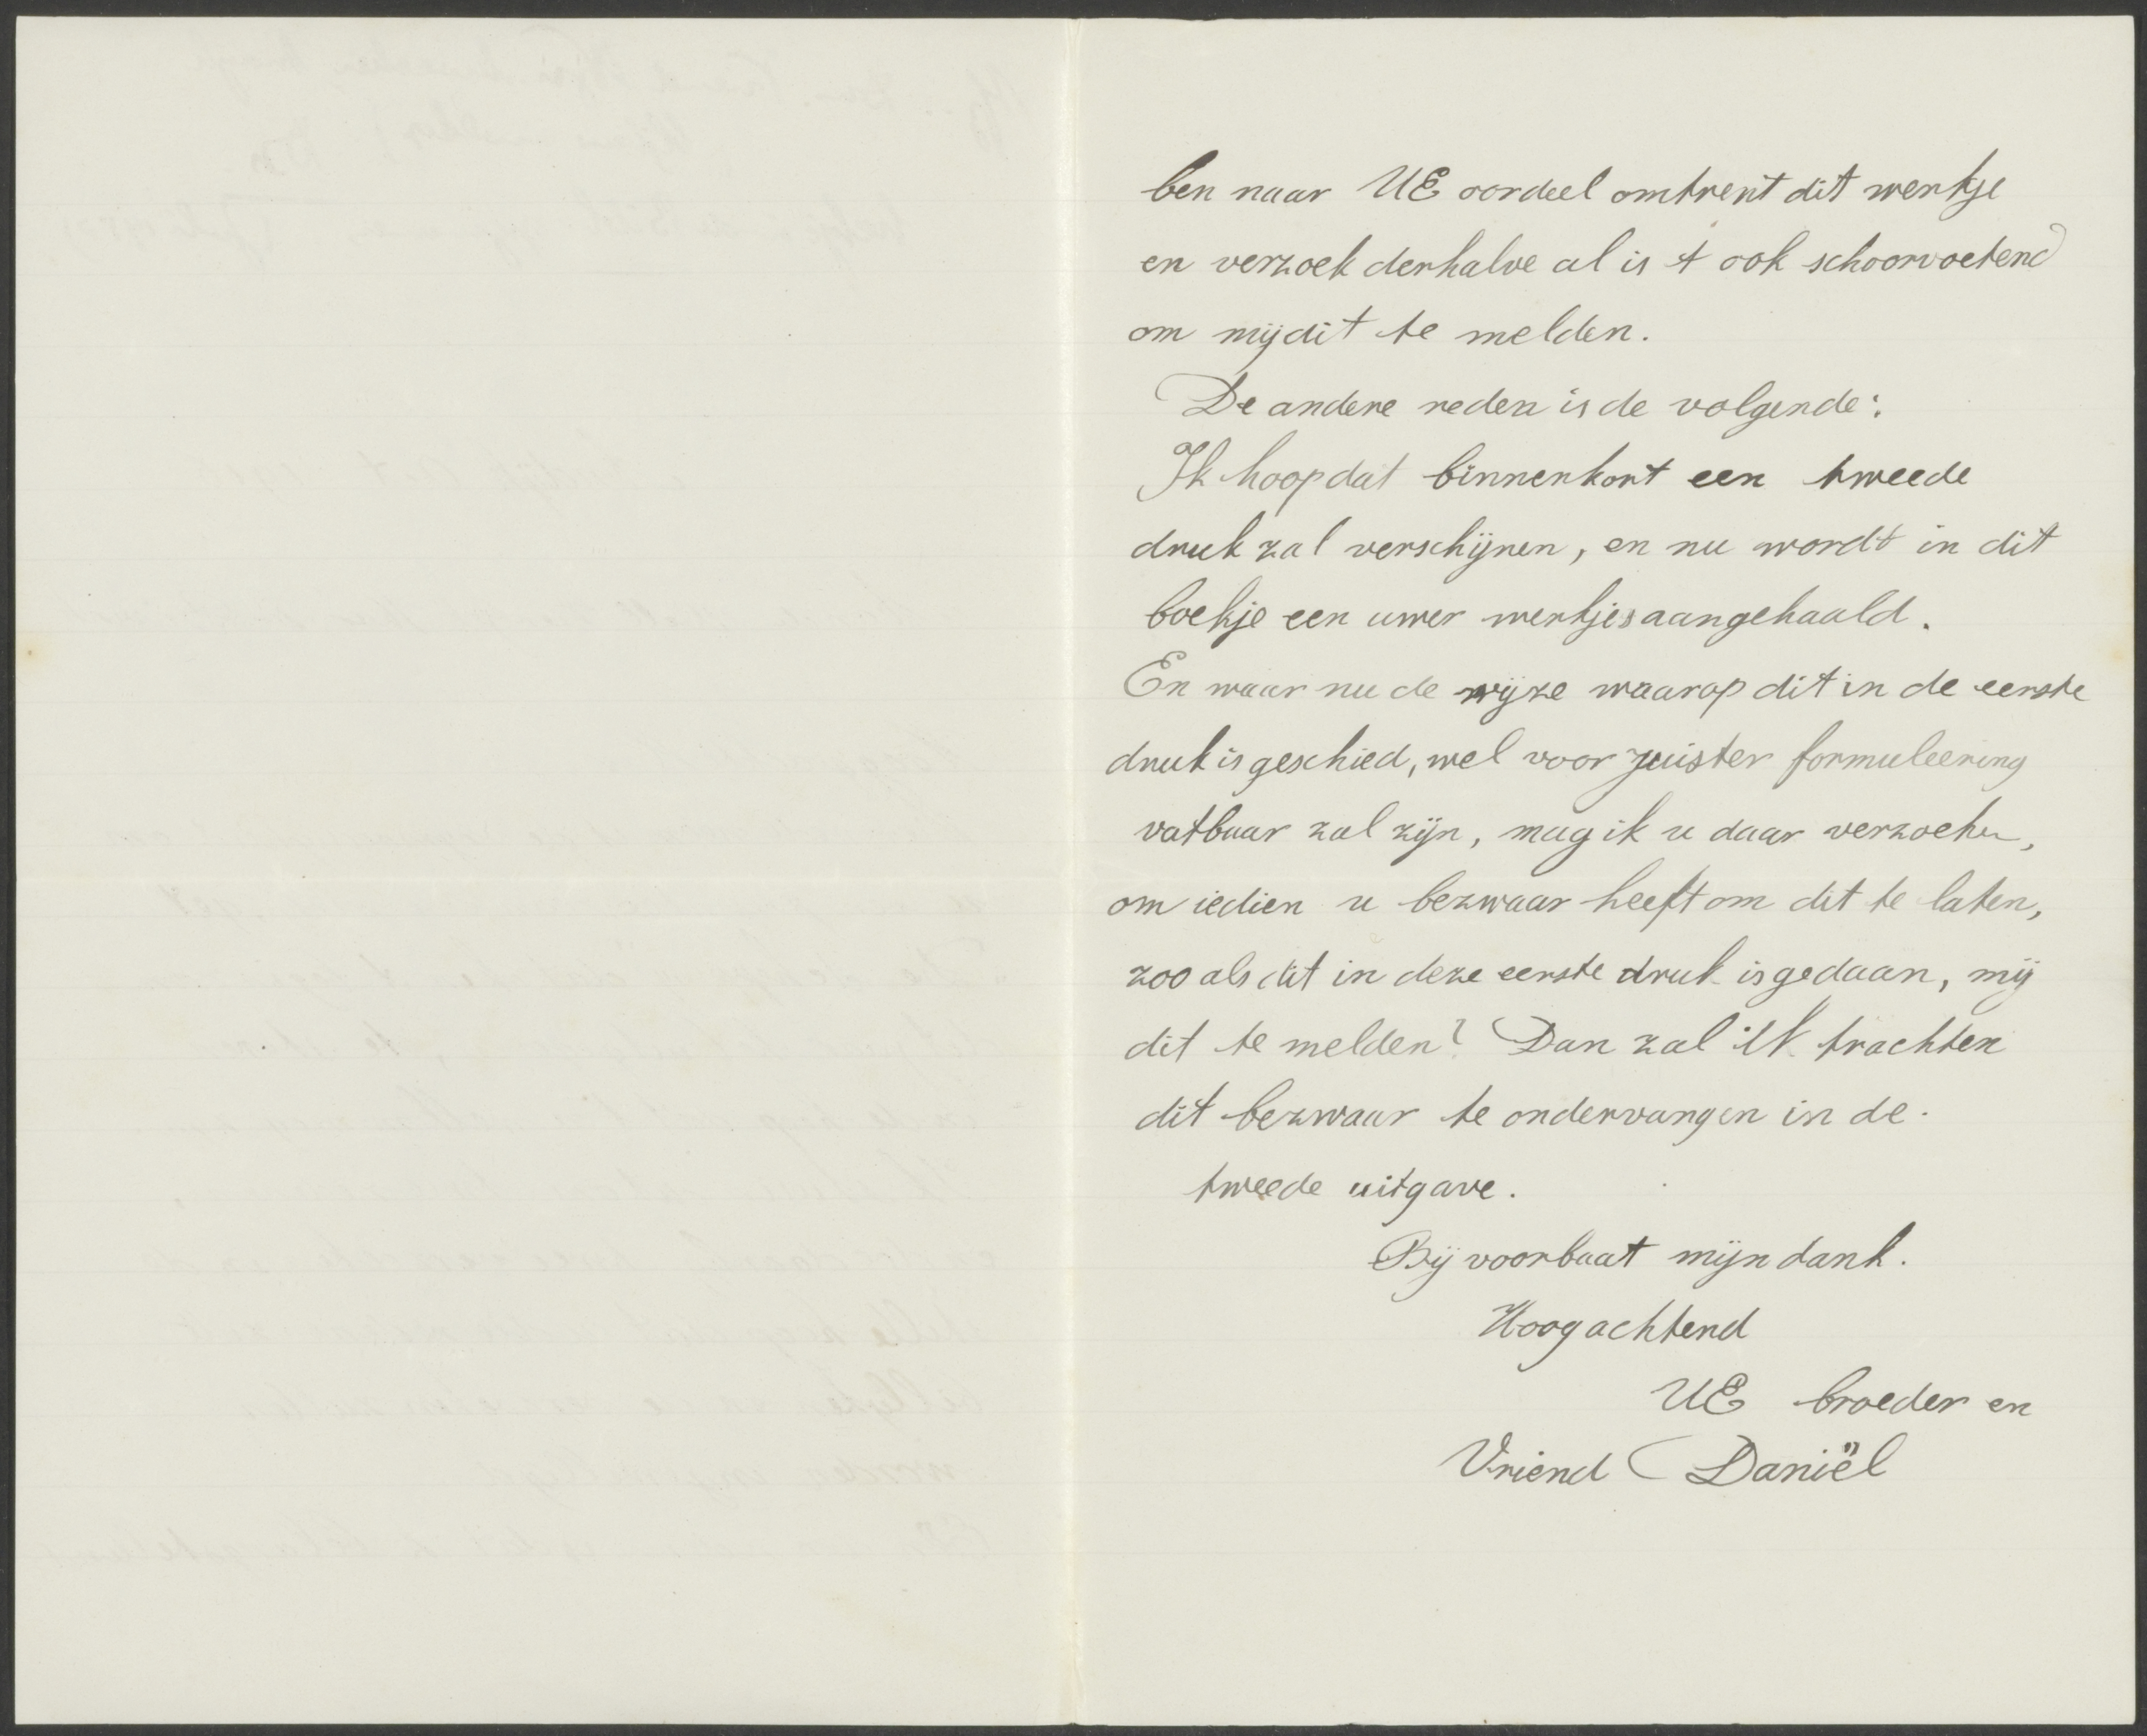 ben naar UE oordeel omtrent dit werkje
en verzoek derhalve al is 't ook schoorvoetend
om mij dit te melden.
De andere reden is de volgende:
Ik hoop dat binnenkort een tweede
druk zal verschijnen, en nu wordt in dit
boekje een uwer werkjes aangehaald.
En waar nu de wijze waarop dit in de eerste
druk is geschied, wel voor juister formuleering
vatbaar zal zijn, mag ik u daar verzoeken,
om iedien u bezwaar heeft om dit te laten,
zoo als dit in deze eerste druk is gedaan, mij
dit te melden? Dan zal ik trachten
dit bezwaar te ondervangen in de
tweede uitgave.
Bij voorbaat mijn dank.
Hoogachtend
UE broeder en
Vriend Daniël